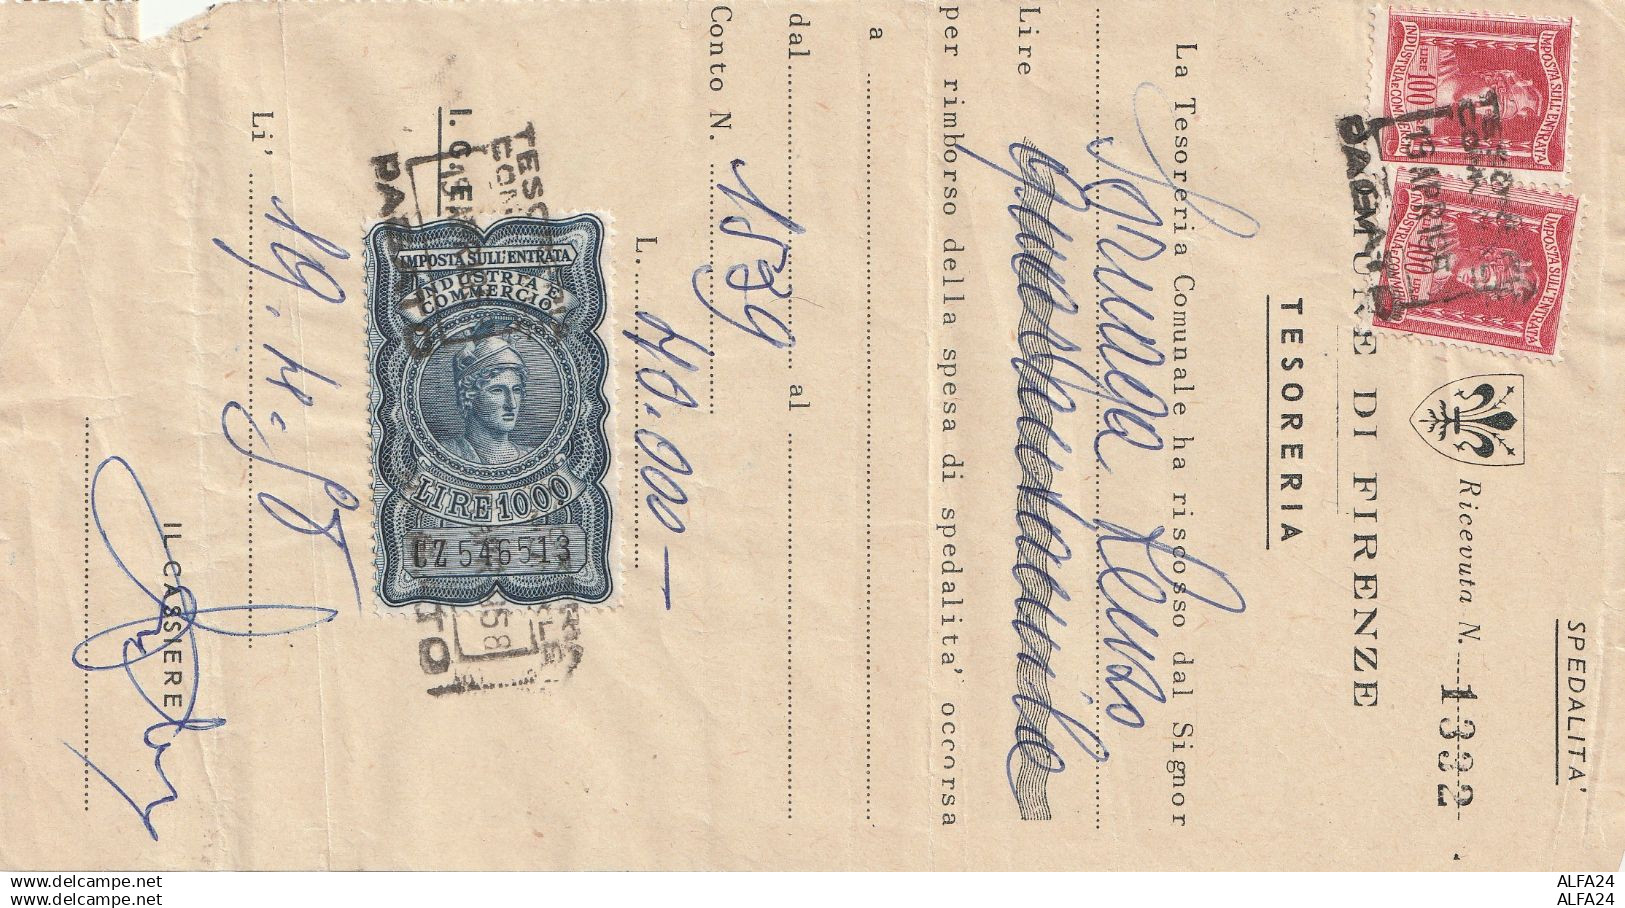 SPEDALITA'
Ricevuta N. 1332
COMUNE DI FIRENZE
TESORERIA
La Tesoreria Comunale ha riscosso dal Signor
Lire quarantamila
per rimborso della spesa di spedalita' occorsa
a
dal al
Conto N. 1539
L. 40.000 —
I. G. E.
Li' 19.4.58
IL CASSIERE
IMPOSTA SULL'ENTRATA
INDUSTRIA E COMMERCIO
LIRE 100
IMPOSTA SULL'ENTRATA
INDUSTRIA E COMMERCIO
LIRE 100
IMPOSTA SULL'ENTRATA
INDUSTRIA E
COMMERCIO
LIRE 1000
CZ 546513
delcampe.net
delcampe.net
ALFA24
ALFA24